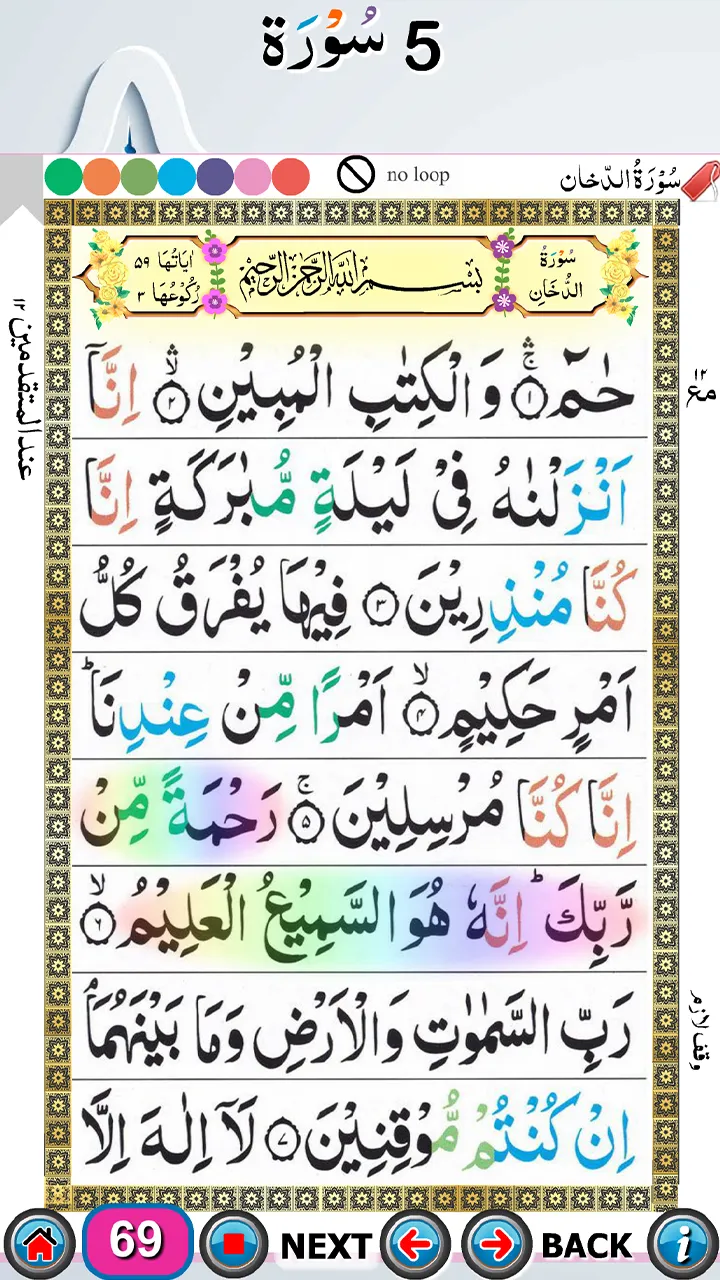 5 سُوْرَة
no loop
سُوْرَةُ الدّخان
سُوْرَةُ الدُّخَانِ
بِسْمِ اللّٰهِ الرَّحْمٰنِ الرَّحِيْمِ
اٰيَاتُهَا ٥٩
رُكُوْعُهَا ٣
حٰمٓ ۚۛ ١ وَ الْكِتٰبِ الْمُبِيْنِ ۙۛ ٢ اِنَّاۤ
اَنْزَلْنٰهُ فِیْ لَيْلَةٍ مُّبٰرَكَةٍ اِنَّا
كُنَّا مُنْذِرِيْنَ ٣ فِيْهَا يُفْرَقُ كُلُّ
اَمْرٍ حَكِيْمٍ ۙ ٤ اَمْرًا مِّنْ عِنْدِنَا ؕ
اِنَّا كُنَّا مُرْسِلِيْنَ ۚ ٥ رَحْمَةً مِّنْ
رَّبِّكَ ؕ اِنَّهٗ هُوَ السَّمِيْعُ الْعَلِيْمُ ۙ ٦
رَبِّ السَّمٰوٰتِ وَالْاَرْضِ وَمَا بَيْنَهُمَا ۘ
اِنْ كُنْتُمْ مُّوْقِنِيْنَ ٧ لَاۤ اِلٰهَ اِلَّا
عند المتقدمين ١٢
وقف لازم
69
NEXT
BACK
i